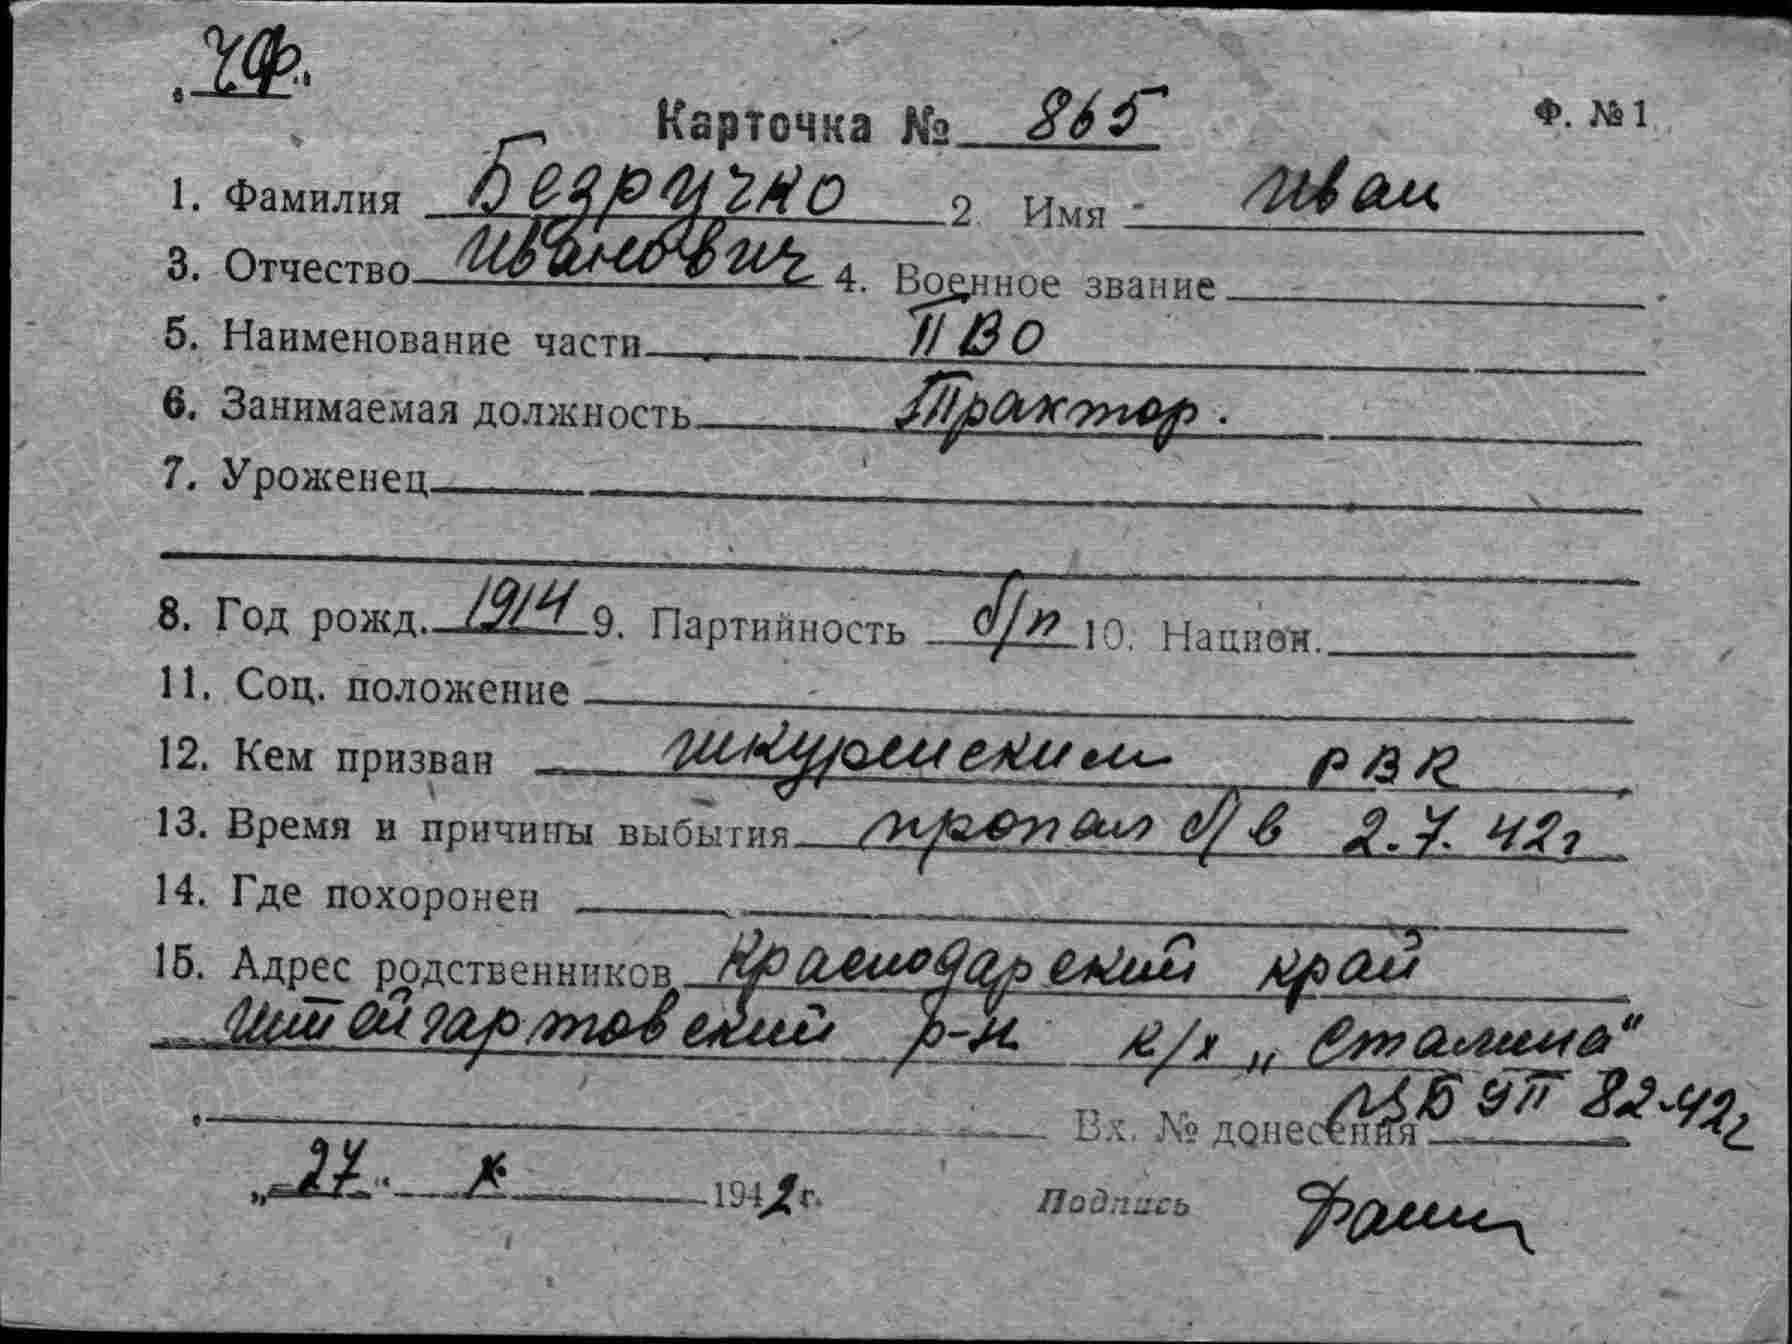 „ЧФ.“
Карточка № 865 Ф. № 1
1. Фамилия Безручко 2 Имя Иван
3. Отчество Иванович 4. Военное звание
5. Наименование части ПВО
6. Занимаемая должность Трактор.
7. Уроженец
8. Год рожд. 1914 9. Партийность б/п 10. Национ.
11. Соц. положение
12. Кем призван шкуренским РВК
13. Время и причины выбытия пропал б/в 2.7.42г
14. Где похоронен
15. Адрес родственников Краснодарский край
Штейгартовский р-н к/х „Сталина“
Вх. № донесения УП 82-42г
„27“ X 1942 г. Подпись